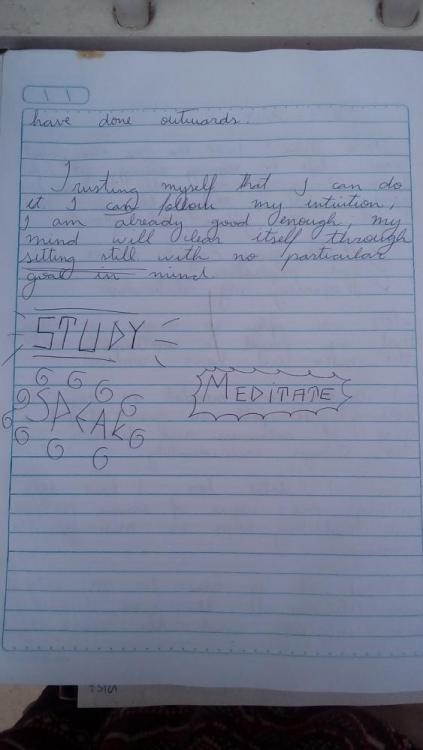 have done outwards.
Trusting myself that I can do
it I can follow my intuition,
I am already good enough, my
mind will clear itself through
sitting still with no particular
goal in mind.
STUDY
MEDITATE
SPEAK